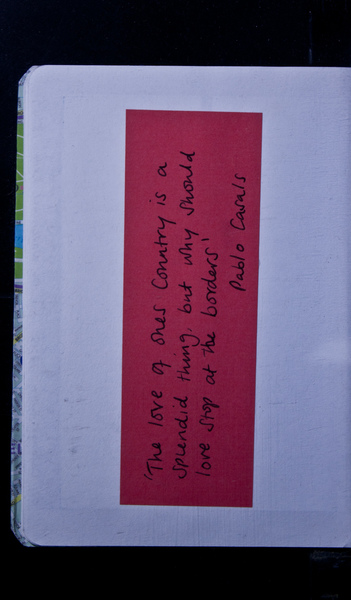 'The love of ones Country is a
splendid thing, but why should
love stop at the borders'
Pablo Casals